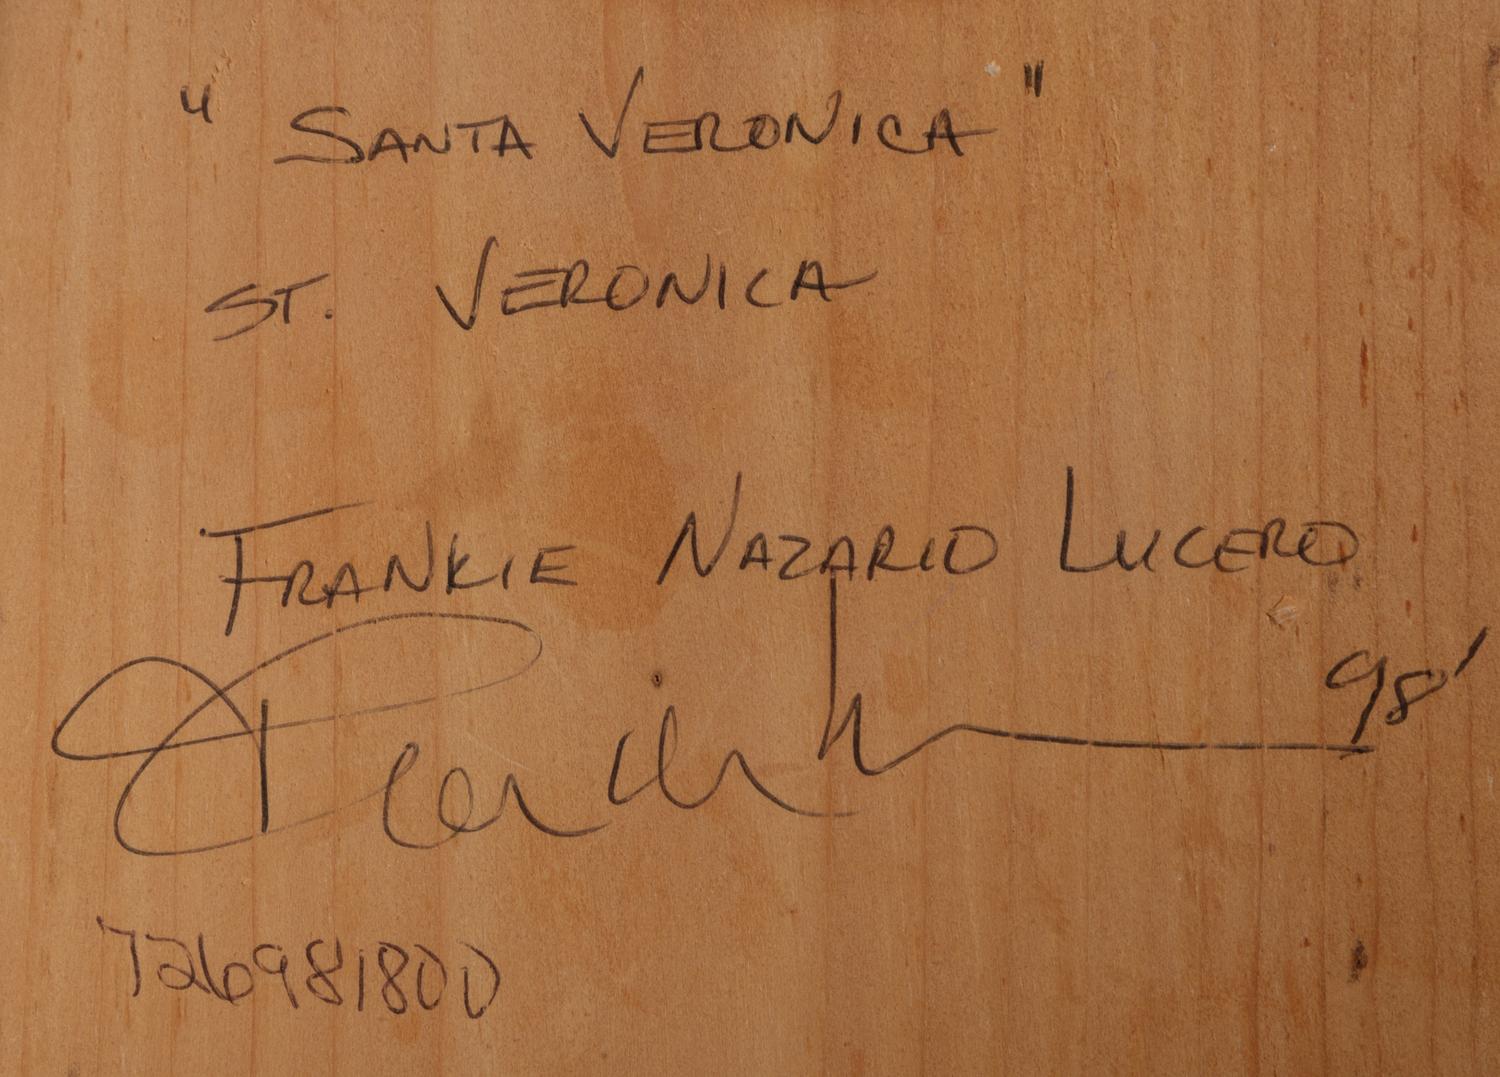 "SANTA VERONICA"
ST. VERONICA
FRANKIE NAZARIO LUCERO
98'
726981800